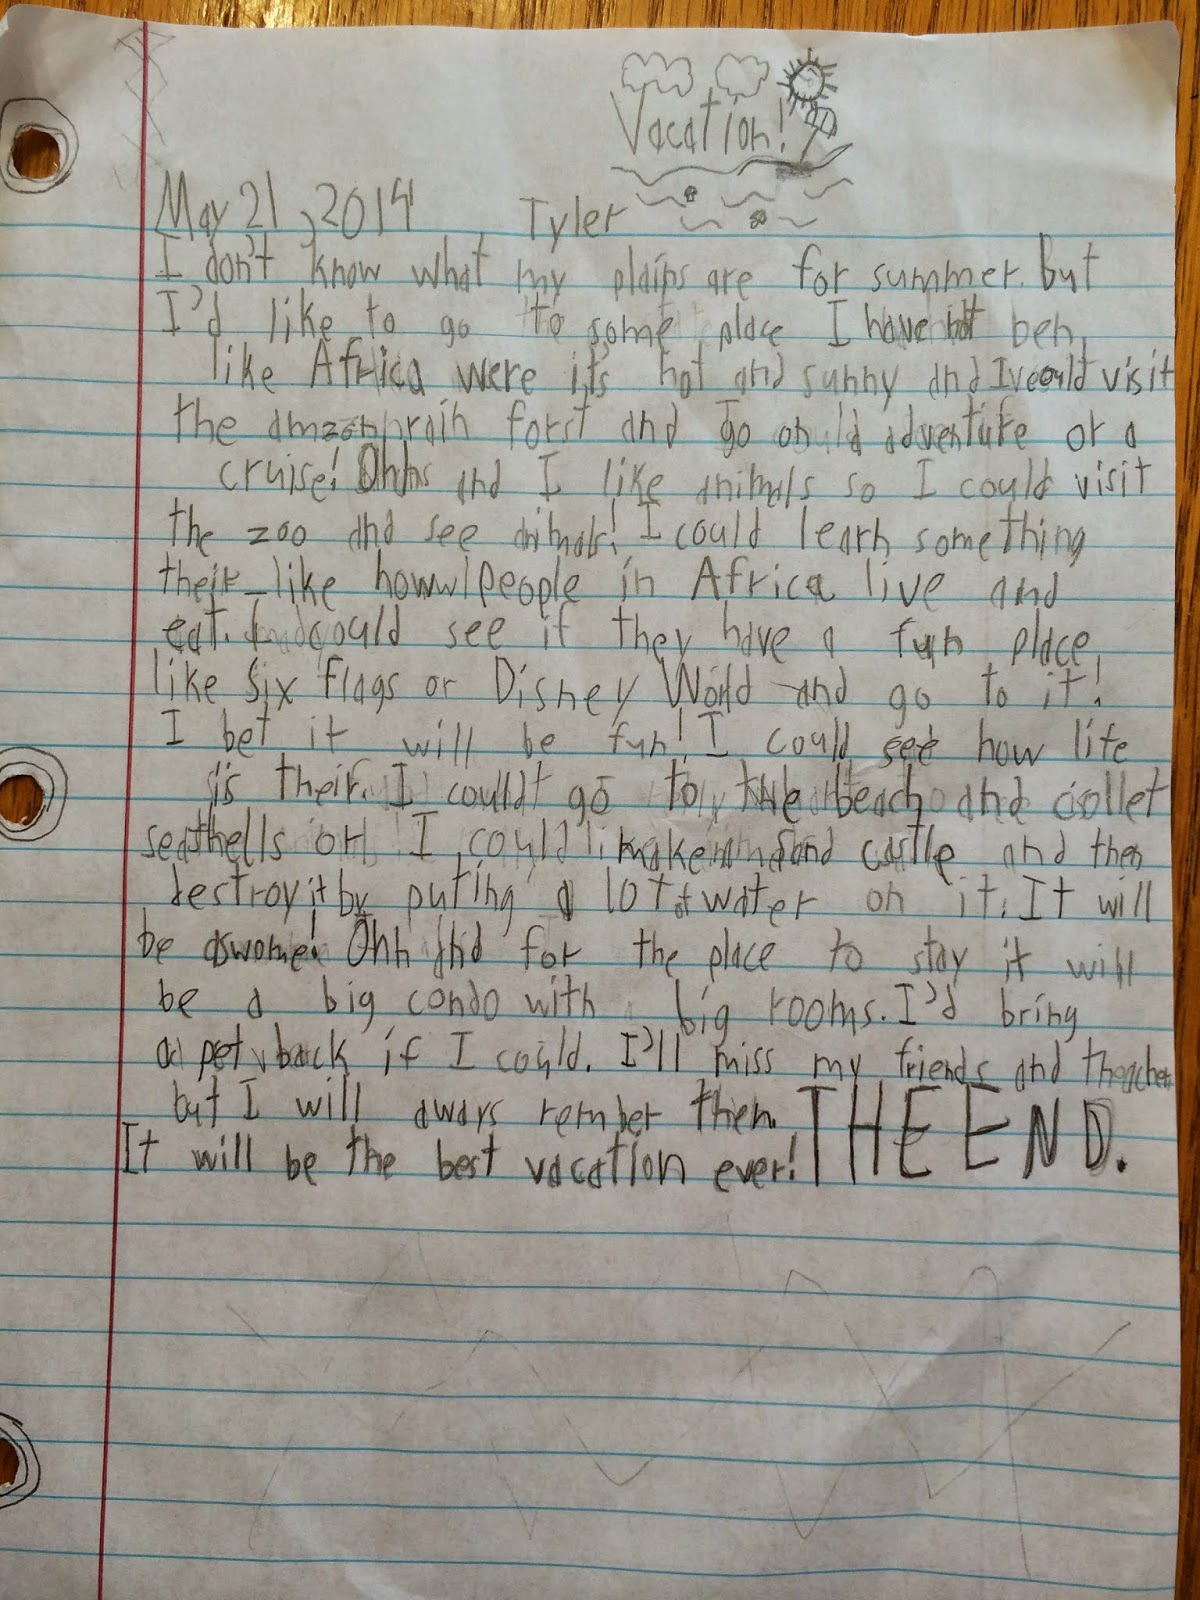 Vacation!
May 21, 2014 Tyler
I don't know what my plains are for summer. But
I'd like to go to some place I have not ben
like Africa were it's hot and sunny and I could visit
the amzon rain forst and go on a adventure or a
cruise! Ohh and I like animals so I could visit
the zoo and see animals! I could learn something
their like how people in Africa live and
eat. I could see if they have a fun place
like Six Flags or Disney World and go to it!
I bet it will be fun! I could see how life
is their. I could go to the beach and collet
seashells or I could make a sand castle and then
destroy it by puting a lot of water on it. It will
be aswome! Ohh and for the place to stay it will
be a big condo with big rooms. I'd bring
a pet back if I could. I'll miss my friends and theacher
but I will aways rember them.
It will be the best vacation ever! THE END.